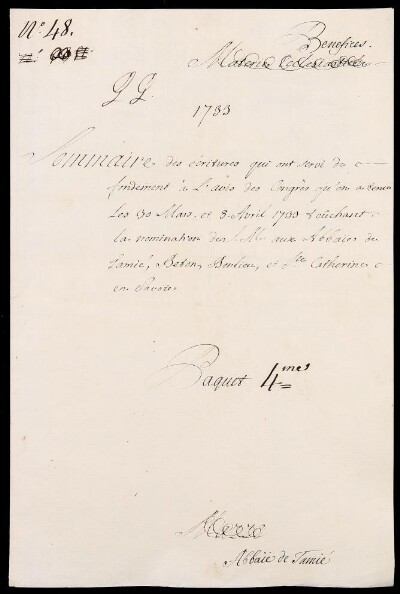 N.o 48.
Benefices.
1733
Sommaire des écritures qui ont servi de
fondement à L'avis des Congrès qu'on a tenu
Les 30 Mars, et 8 Avril 1733 touchant
la nomination de S. M. aux Abbaies de
Tamié, Beton, Bonlieu, et Ste Catherine
en Savoie
Paquet 4.mes
Abbaïe de Tamié